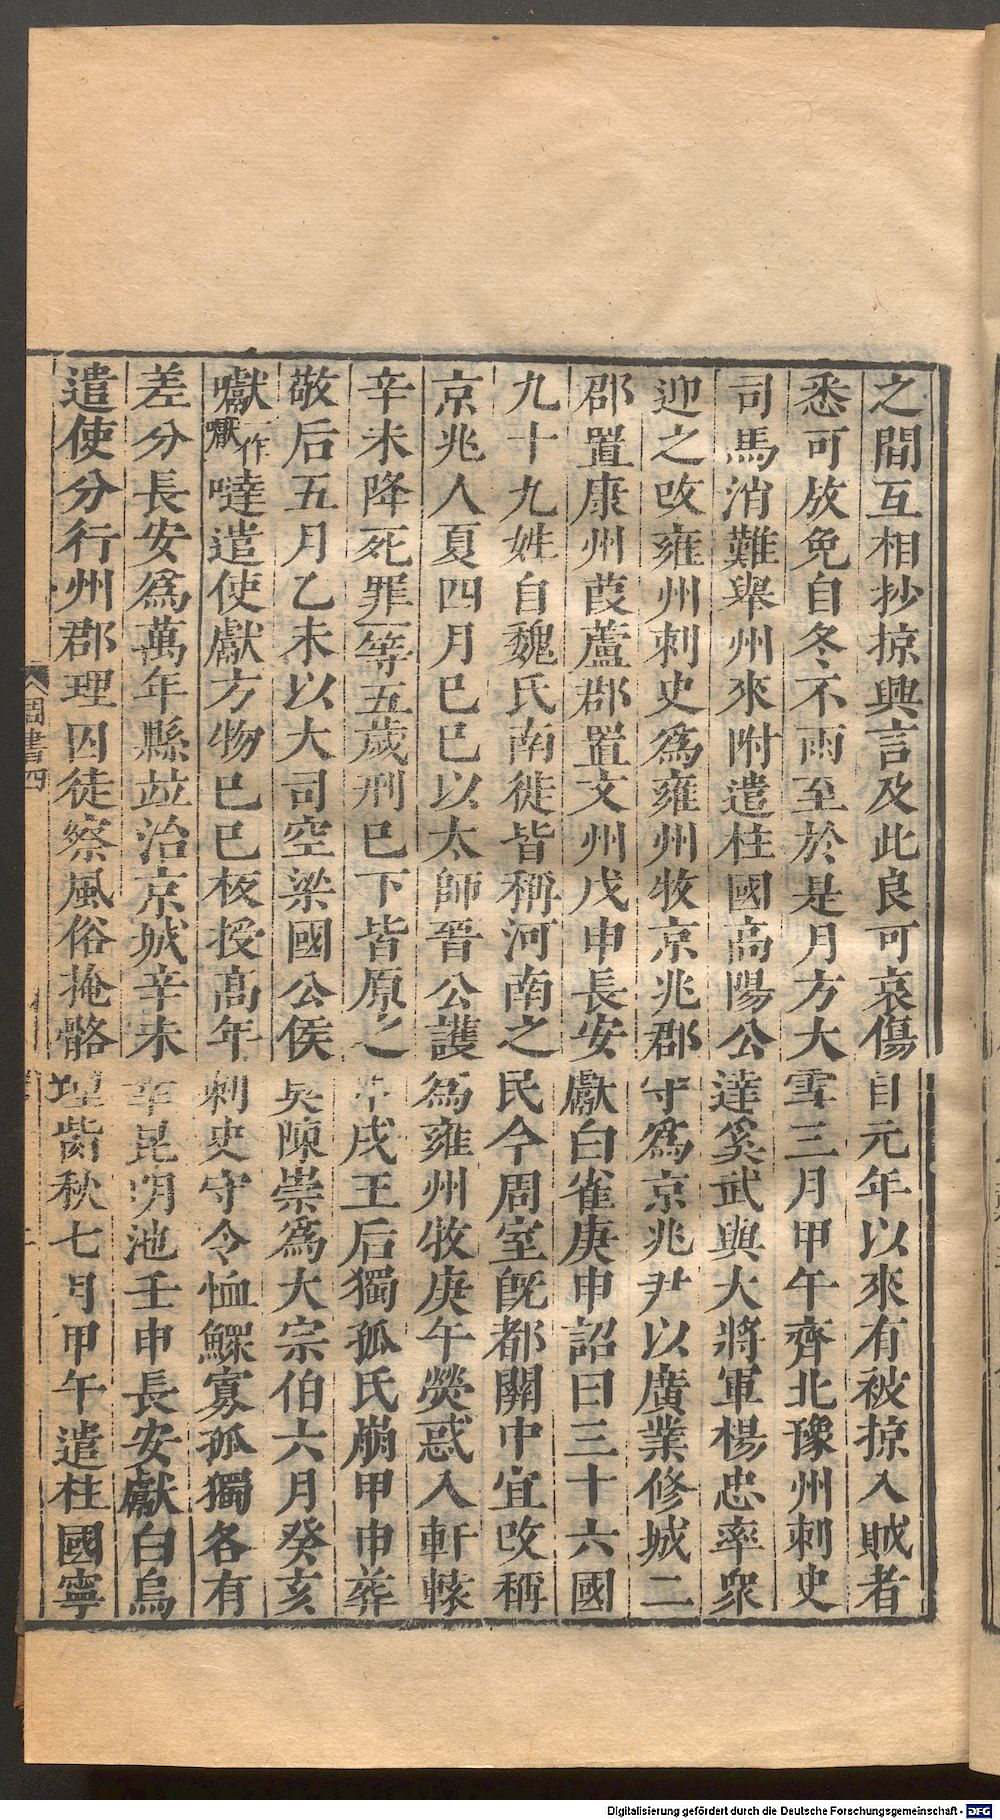 之間互相抄掠興言及此良可哀傷自元年以來有被掠入賊者
悉可放免自冬不雨至於是月方大雪三月甲午齊北豫州刺史
司馬消難舉州來附遣柱國高陽公達奚武與大將軍楊忠率衆
迎之改雍州刺史爲雍州牧京兆郡守爲京兆尹以廣業修城二
郡置康州葭蘆郡置文州戊申長安獻白雀庚申詔曰三十六國
九十九姓自魏氏南徙皆稱河南之民今周室旣都關中宜改稱
京兆人夏四月巳巳以太師晉公護爲雍州牧庚午熒惑入軒轅
辛未降死罪一等五歲刑巳下皆原之甲戌王后獨孤氏崩甲申葬
敬后五月乙未以大司空梁國公侯莫陳崇爲大宗伯六月癸亥
囐一作𠿕噠遣使獻方物巳巳板授高年刺史守令恤鰥寡孤獨各有
差分長安爲萬年縣竝治京城辛未幸昆明池壬申長安獻白烏
遣使分行州郡理囚徒察風俗掩骼埋胔秋七月甲午遣柱國寧
周書四
Digitalisierung gefördert durch die Deutsche Forschungsgemeinschaft - DFG